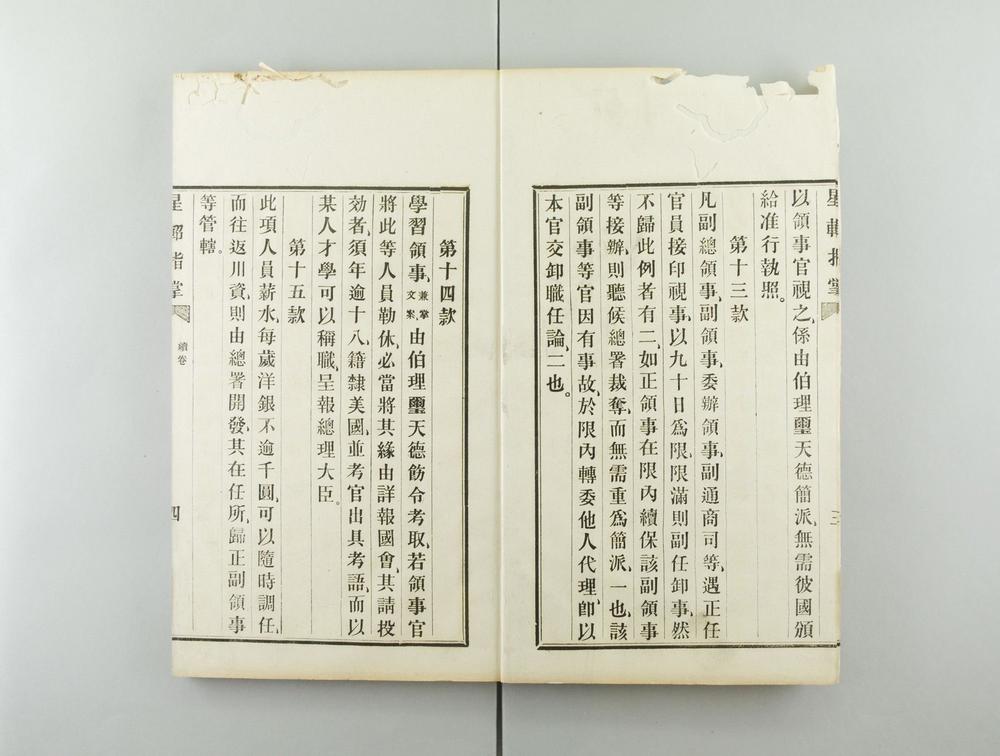 星軺指掌
三
以領事官視之、係由伯理璽天德簡派、無需彼國頒
給准行執照。
第十三款
凡副總領事、副領事、委辦領事、副通商司等、遇正任
官員接印視事、以九十日爲限、限滿則副任卸事、然
不歸此例者有二、如正領事在限內續保該副領事
等接辦、則聽候總署裁奪、而無需重爲簡派、一也、該
副領事等官因有事故、於限內轉委他人代理、卽以
本官交卸職任論、二也。
第十四款
學習領事、兼掌文案、由伯理璽天德飭令考取、若領事官
將此等人員勒休、必當將其緣由詳報國會、其請投
効者、須年逾十八、籍隸美國、並考官出具考語、而以
某人才學可以稱職、呈報總理大臣。
第十五款
此項人員薪水、每歲洋銀不逾千圓、可以隨時調任、
而往返川資、則由總署開發、其在任所、歸正副領事
等管轄。
星軺指掌
續卷
四